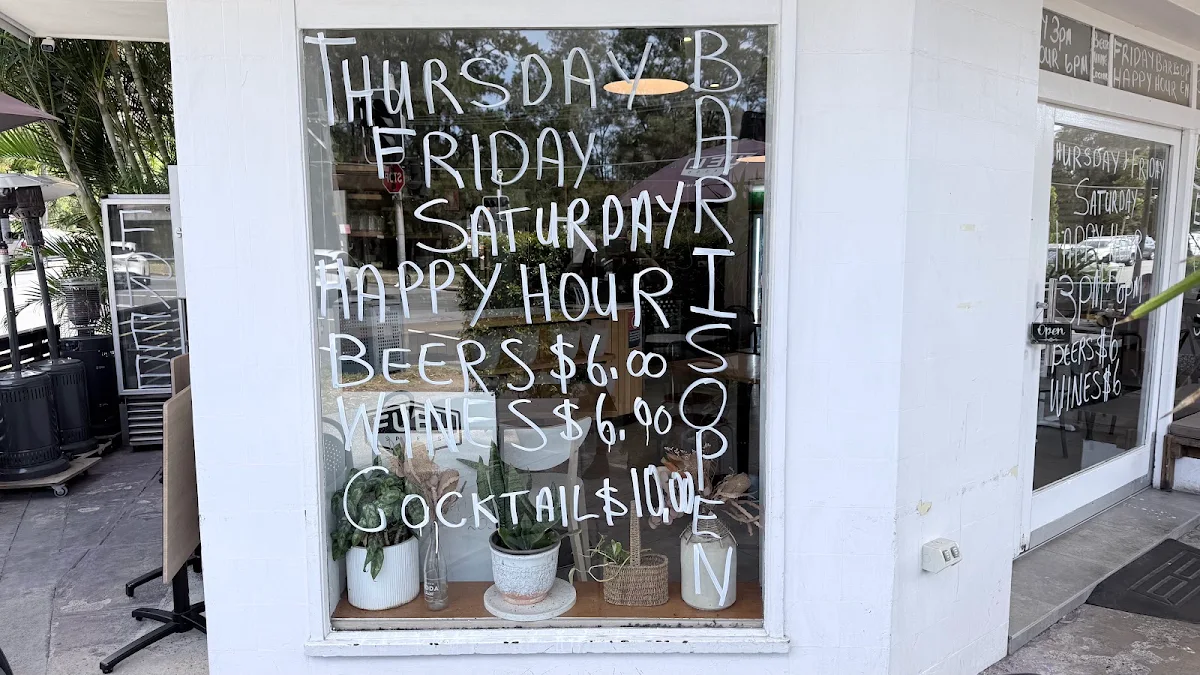 THURSDAY
FRIDAY
SATURDAY
HAPPY HOUR
BEERS $6.00
WINES $6.00
COCKTAIL $10.00
BAR IS OPEN
3PM
OUR 6PM
FRIDAY BAR
HAPPY HOUR
THURSDAY FRIDAY
SATURDAY
HAPPY
3PM-6PM
Open
BEERS $6
WINES $6